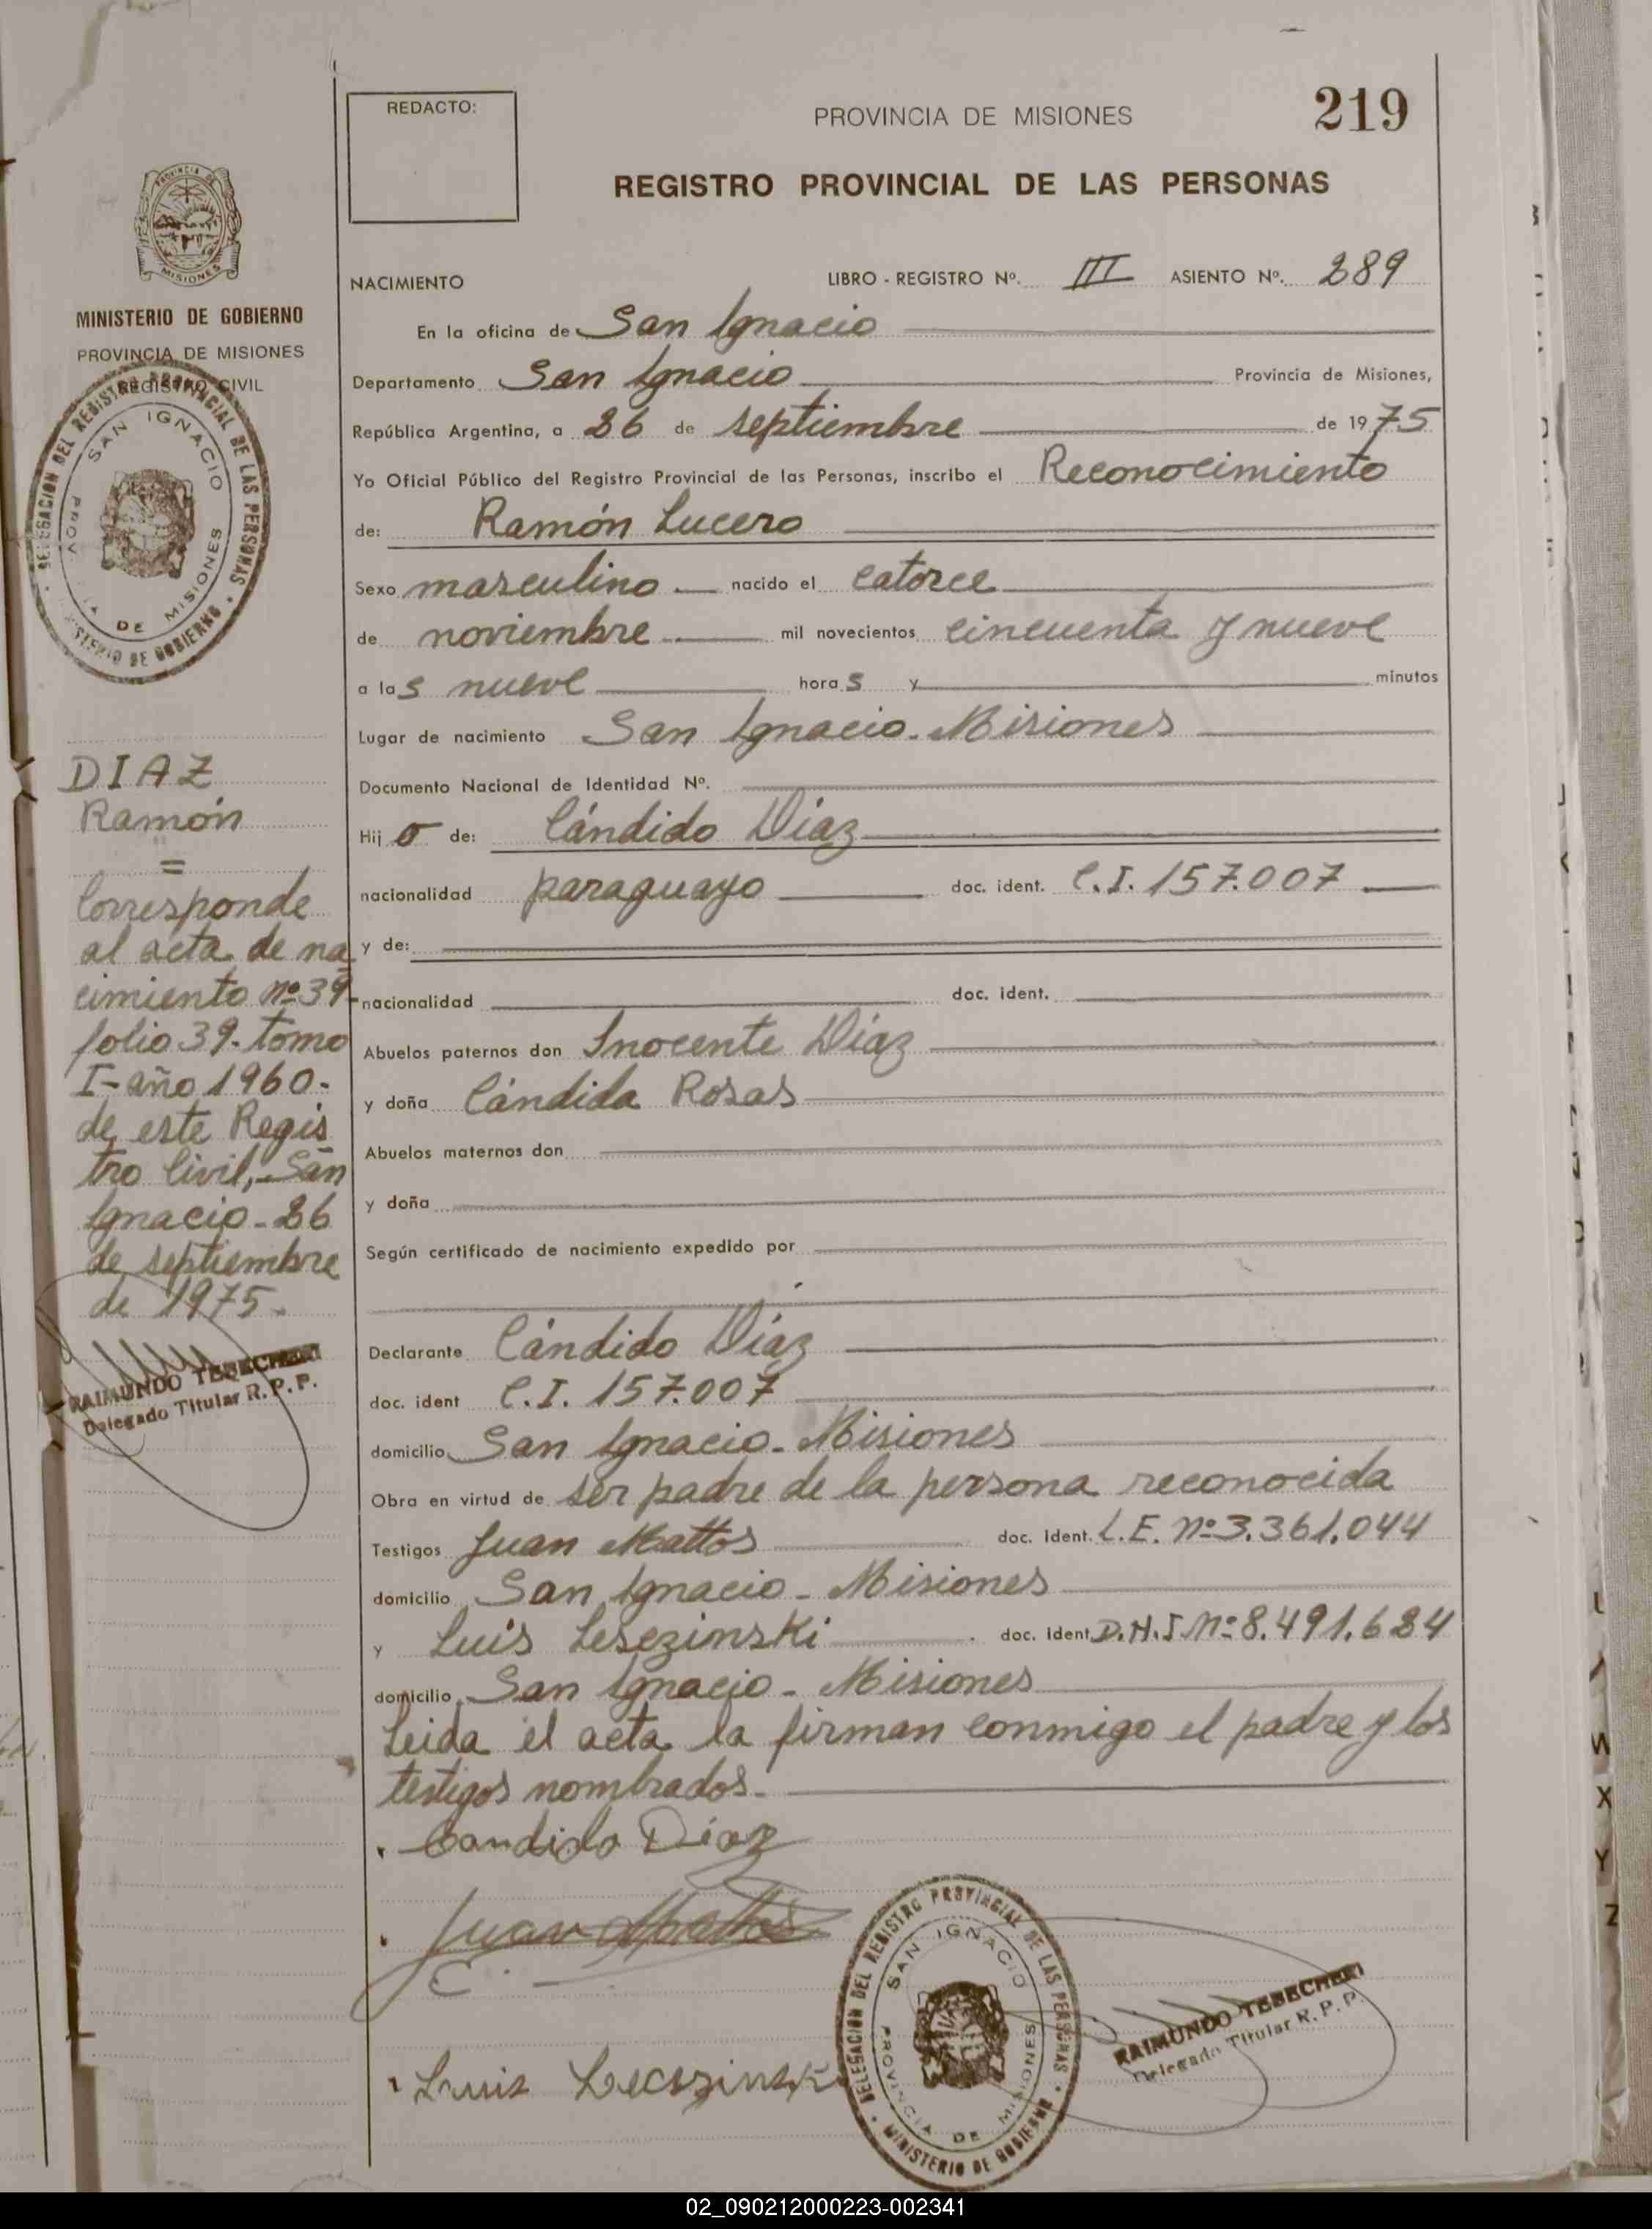 REDACTO:
PROVINCIA DE MISIONES
219
REGISTRO PROVINCIAL DE LAS PERSONAS
MISIONES
MINISTERIO DE GOBIERNO
PROVINCIA DE MISIONES
REGISTRO CIVIL
DELEGACION DEL REGISTRO PROVINCIAL DE LAS PERSONAS
SAN IGNACIO
DE MISIONES
MINISTERIO DE GOBIERNO
DIAZ
Ramón
=
Corresponde
al acta de na
cimiento nº 39-
folio 39. tomo
I- año 1960.
de este Regis
tro Civil,- San
Ignacio - 26
de septiembre
de 1975.
RAIMUNDO TEBECHERI
Delegado Titular R. P. P.
NACIMIENTO LIBRO - REGISTRO Nº. III ASIENTO Nº. 289
En la oficina de San Ignacio
Departamento San Ignacio Provincia de Misiones,
República Argentina, a 26 de septiembre de 1975
Yo Oficial Público del Registro Provincial de las Personas, inscribo el Reconocimiento
de: Ramón Lucero
Sexo masculino nacido el catorce
de noviembre mil novecientos cincuenta y nueve
a las nueve horas y minutos
Lugar de nacimiento San Ignacio - Misiones
Documento Nacional de Identidad Nº.
Hijo de: Cándido Díaz
nacionalidad paraguayo doc. ident. C.I. 157.007
y de:
nacionalidad doc. ident.
Abuelos paternos don Inocente Díaz
y doña Cándida Rosas
Abuelos maternos don
y doña
Según certificado de nacimiento expedido por
Declarante Cándido Díaz
doc. ident C.I. 157.007
domicilio San Ignacio - Misiones
Obra en virtud de ser padre de la persona reconocida
Testigos Juan Mattos doc. ident. L.E. nº 3.361.044
domicilio San Ignacio - Misiones
y Luis Lesezinski doc. ident D.N.I. nº 8.491.624
domicilio San Ignacio - Misiones
Leida el acta la firman conmigo el padre y los
testigos nombrados.
Candido Díaz
Juan Mattos
Luis
DELEGACION DEL REGISTRO PROVINCIAL DE LAS PERSONAS
SAN IGNACIO
PROVINCIA DE MISIONES
MINISTERIO DE GOBIERNO
RAIMUNDO TEBECHERI
Delegado Titular R. P. P.
W
X
Y
Z
02_090212000223-002341